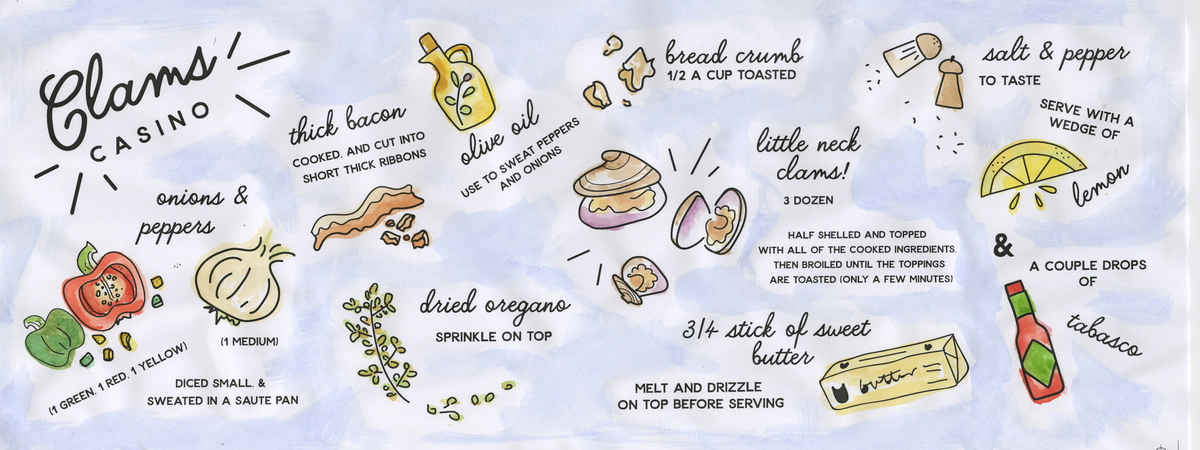 Clams
CASINO
onions &
peppers
(1 GREEN, 1 RED, 1 YELLOW)
(1 MEDIUM)
DICED SMALL, &
SWEATED IN A SAUTE PAN
thick bacon
COOKED, AND CUT INTO
SHORT THICK RIBBONS
olive oil
USE TO SWEAT PEPPERS
AND ONIONS
dried oregano
SPRINKLE ON TOP
bread crumb
1/2 A CUP TOASTED
little neck
clams!
3 DOZEN
HALF SHELLED AND TOPPED
WITH ALL OF THE COOKED INGREDIENTS,
THEN BROILED UNTIL THE TOPPINGS
ARE TOASTED (ONLY A FEW MINUTES)
3/4 stick of sweet
butter
MELT AND DRIZZLE
ON TOP BEFORE SERVING
butter
salt & pepper
TO TASTE
SERVE WITH A
WEDGE OF
lemon
&
A COUPLE DROPS
OF
tabasco